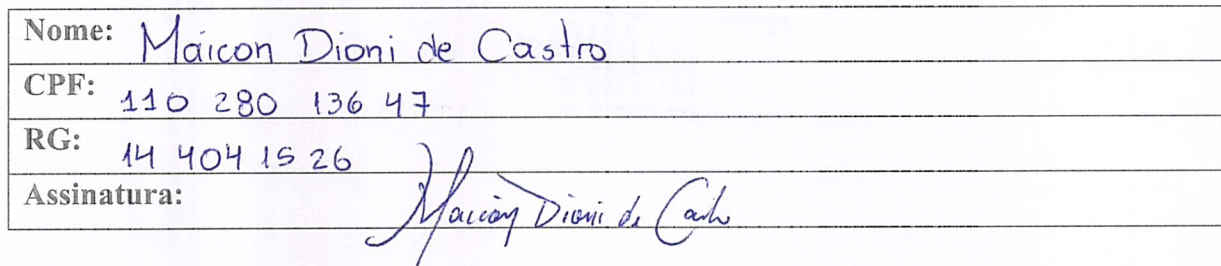 Nome: Maicon Dioni de Castro
CPF: 110 280 136 47
RG: 14 404 15 26
Assinatura: Maicon Dioni de Castro